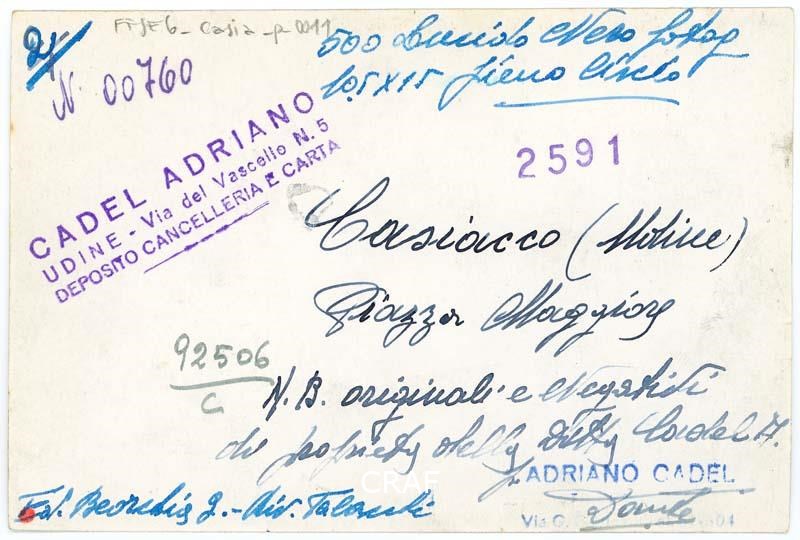 FFJF6 - Casia - p-0011
21
N. 00760
500 Lucido Nero fotog
10,5 x 15 pieno
CADEL ADRIANO
UDINE - Via del Vascello N. 5
DEPOSITO CANCELLERIA E CARTA
2591
Casiacco (Moline)
Piazza Maggiore
92506
C
N.B. originali e Negativi
di propriety della Ditta Cadel A.
ADRIANO CADEL
Dante
Via G.
CRAF
Fot. Beorchia